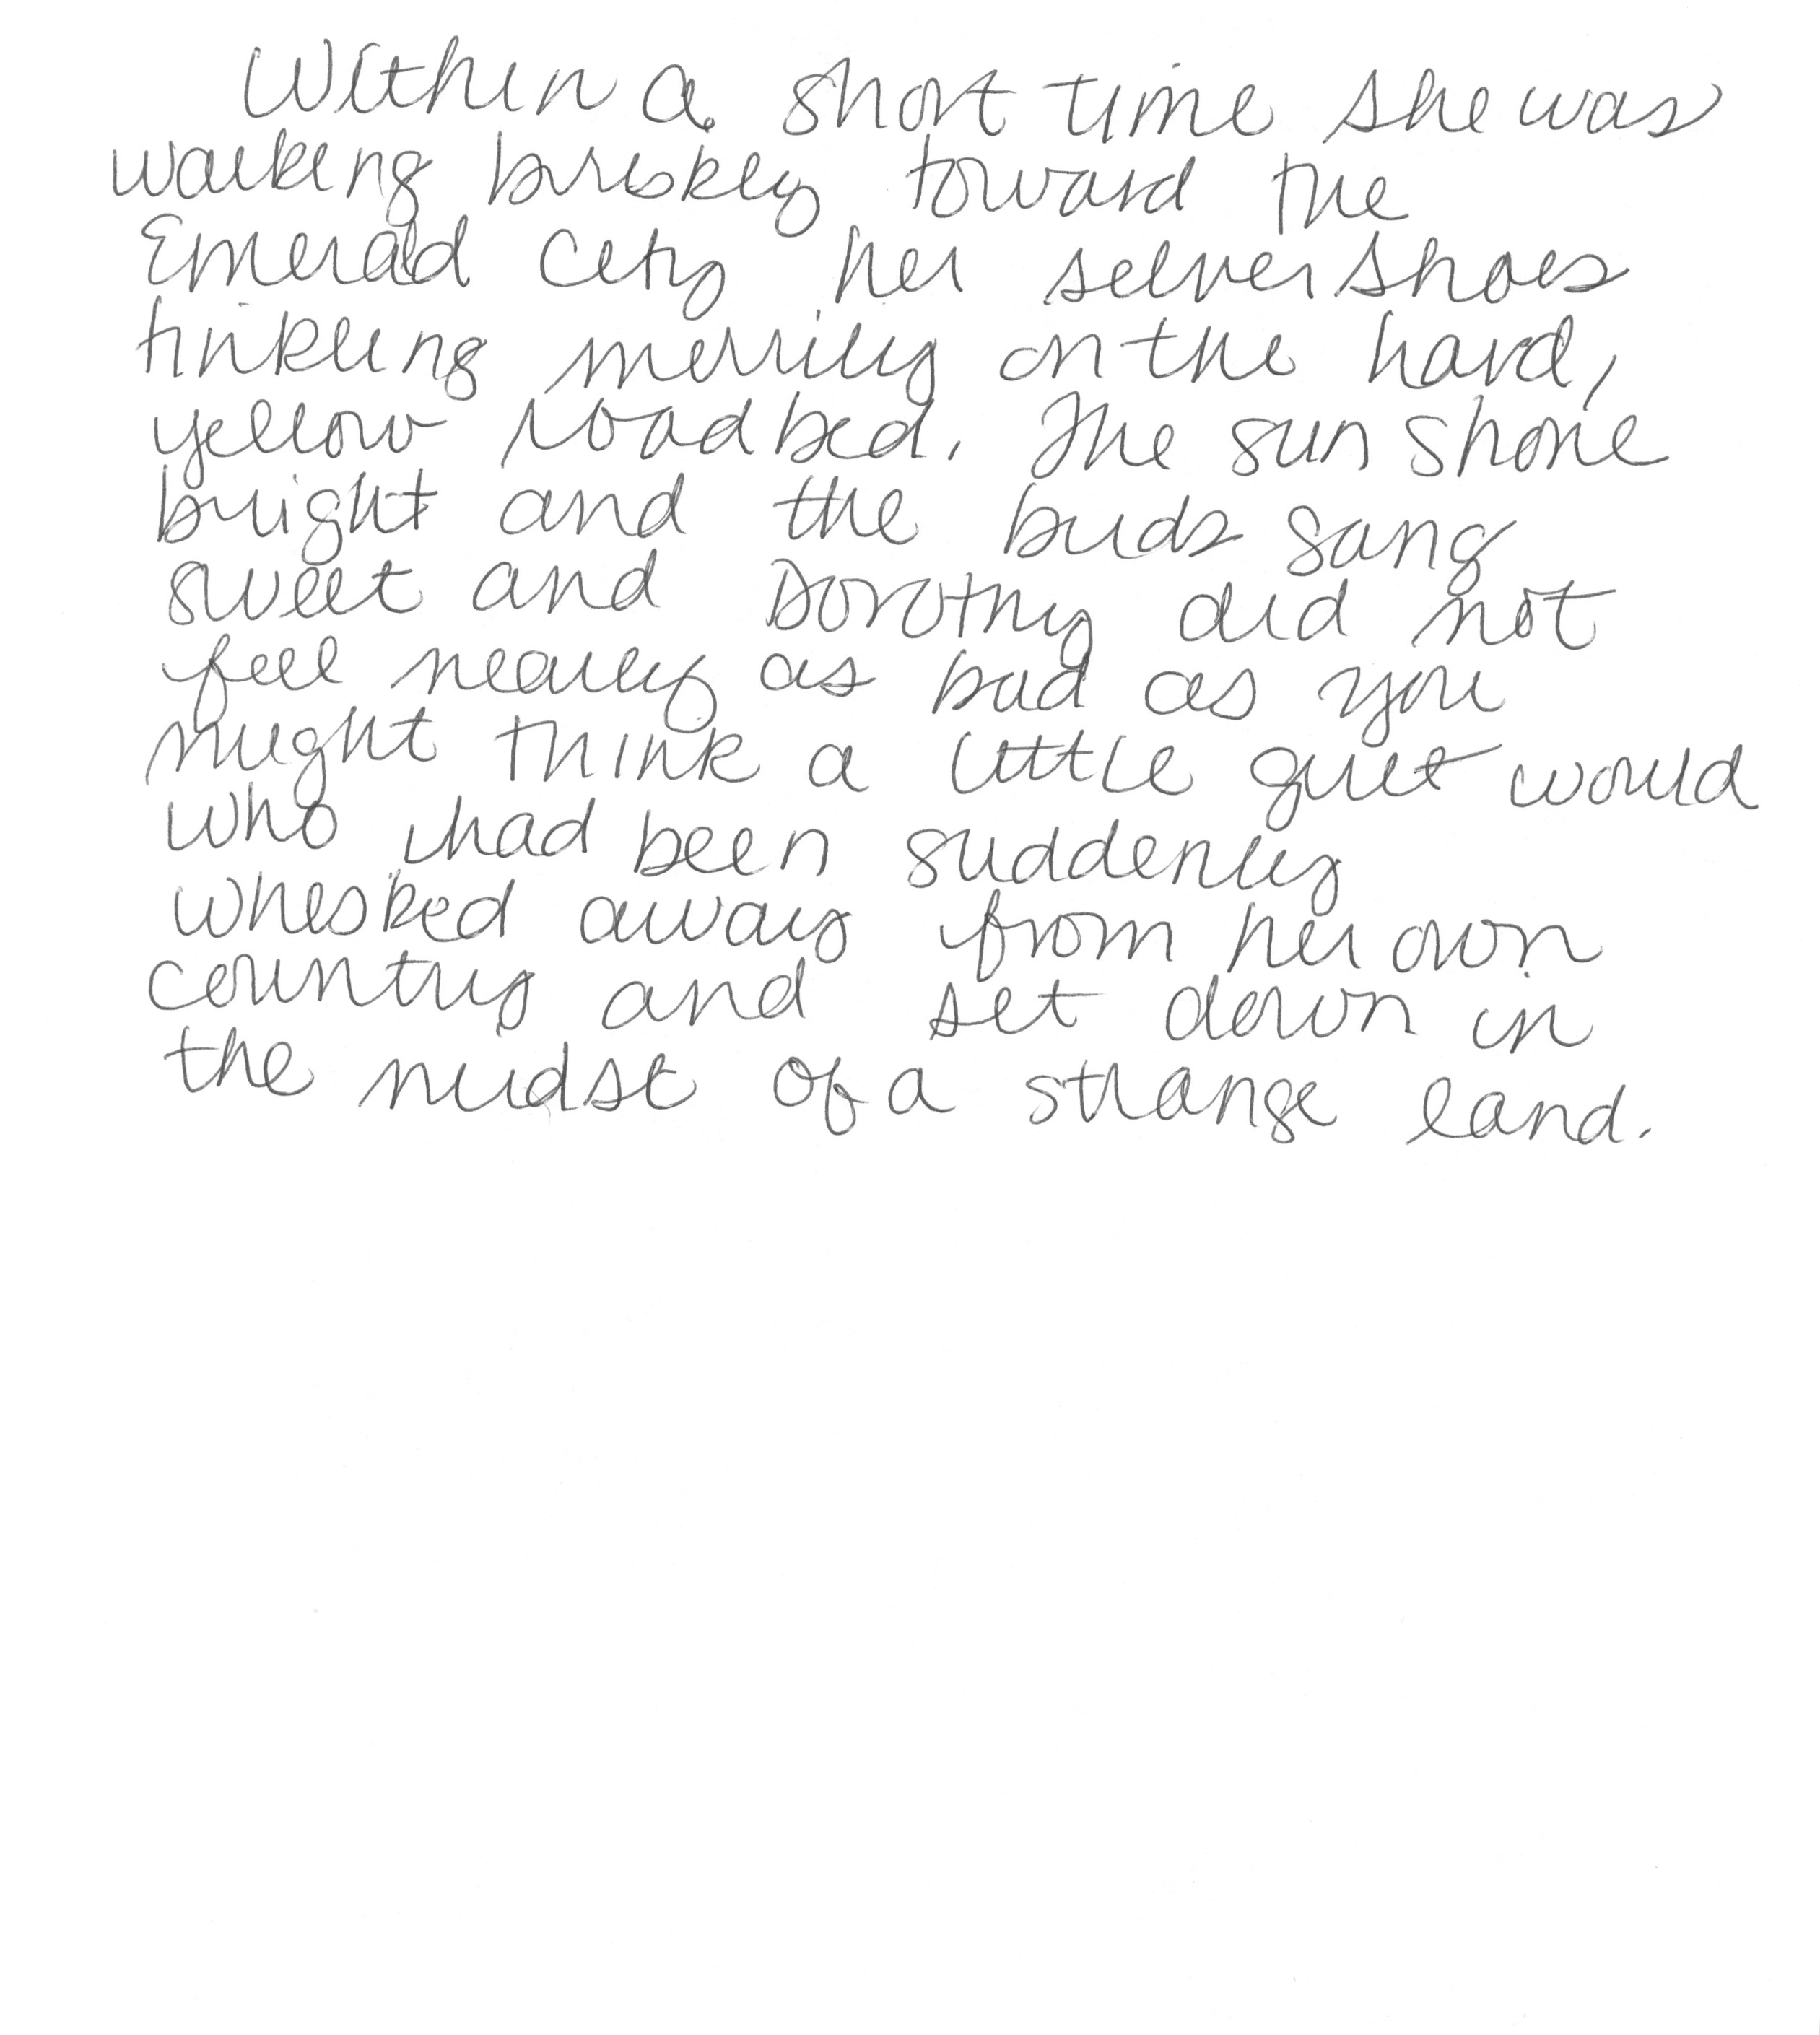 Within a short time she was
walking briskly toward the
Emerald City her silver shoes
tinkling merrily on the hard,
yellow roadbed. The sun shone
bright and the birds sang
sweet and Dorothy did not
feel nearly as bad as you
might think a little girl would
who had been suddenly
whisked away from her own
country and set down in
the midst of a strange land.